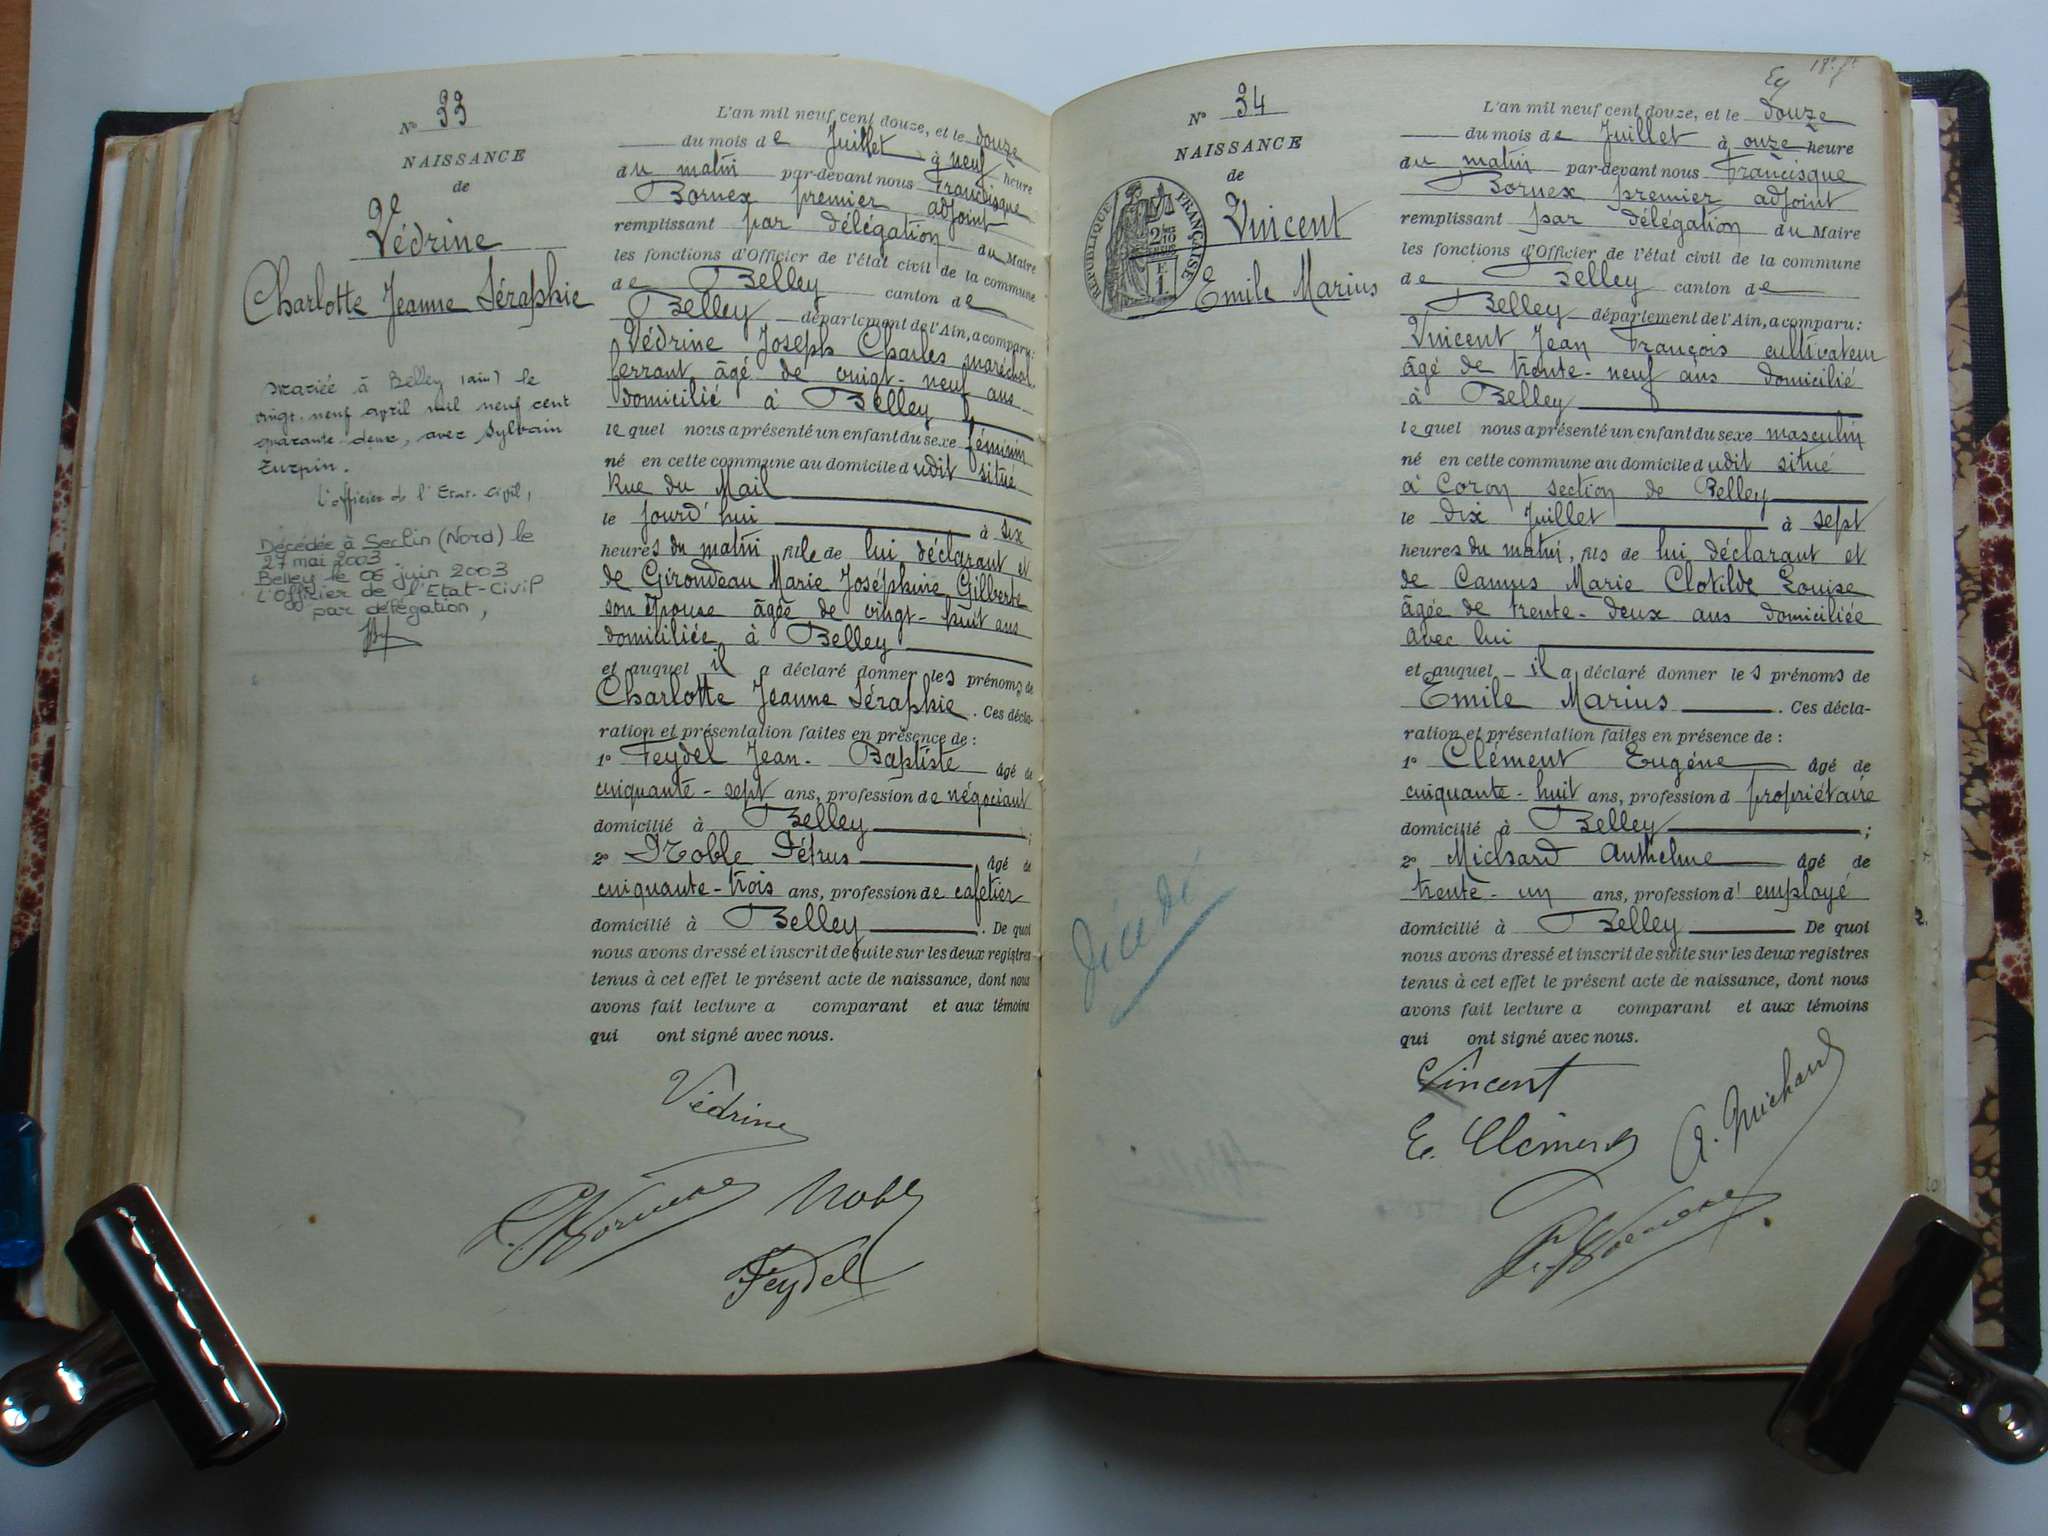 N° 33
NAISSANCE
de
Védrine
Charlotte Jeanne Séraphie
Mariée à Belley (ain) le
vingt-neuf april mil neuf cent
quarante deux, avec Sylvain
Turpin.
L'officier de l'Etat-Civil,
Décédée à Seclin (Nord) le
27 mai 2003
Belley le 06 juin 2003
L'Officier de l'Etat-Civil
par délégation,
L'an mil neuf cent douze, et le douze
du mois de Juillet à neuf heure
du matin par-devant nous Francisque
Bornex premier adjoint
remplissant par délégation du Maire
les fonctions d'Officier de l'état civil de la commune
de Belley canton de
Belley département de l'Ain, a comparu:
Védrine Joseph Charles maréchal
ferrant âgé de vingt-neuf ans
domicilié à Belley
lequel nous a présenté un enfant du sexe féminin
né en cette commune au domicile dudit situé
Rue du Mail
le jourd'hui à six
heures du matin fille de lui déclarant et
de Girondeau Marie Joséphine Gilberte
son épouse âgée de vingt-huit ans
domiciliée à Belley
et auquel il a déclaré donner les prénoms de
Charlotte Jeanne Séraphie. Ces décla-
ration et présentation faites en présence de:
1° Feydel Jean-Baptiste âgé de
cinquante-sept ans, profession de négociant
domicilié à Belley;
2° Noble Pétrus âgé de
cinquante-trois ans, profession de cafetier
domicilié à Belley. De quoi
nous avons dressé et inscrit de suite sur les deux registres
tenus à cet effet le présent acte de naissance, dont nous
avons fait lecture a comparant et aux témoins
qui ont signé avec nous.
Védrine
F. Bornex Noble
Feydel
18° ft
N° 34
NAISSANCE
de
Vincent
Emile Marius
RÉPUBLIQUE FRANÇAISE
2/10
EN SUS
F.
1.
Décédé
L'an mil neuf cent douze, et le douze
du mois de Juillet à onze heure
du matin par-devant nous Francisque
Bornex premier adjoint
remplissant par délégation du Maire
les fonctions d'Officier de l'état civil de la commune
de Belley canton de
Belley département de l'Ain, a comparu:
Vincent Jean François cultivateur
âgé de trente-neuf ans domicilié
à Belley
lequel nous a présenté un enfant du sexe masculin
né en cette commune au domicile dudit situé
à Coron section de Belley
le dix Juillet à sept
heures du matin, fils de lui déclarant et
de Camus Marie Clotilde Louise
âgée de trente-deux ans domiciliée
avec lui
et auquel il a déclaré donner les prénoms de
Emile Marius. Ces décla-
ration et présentation faites en présence de:
1° Clément Eugène âgé de
cinquante-huit ans, profession d propriétaire
domicilié à Belley;
2° Michard Anthelme âgé de
trente-un ans, profession d'employé
domicilié à Belley De quoi
nous avons dressé et inscrit de suite sur les deux registres
tenus à cet effet le présent acte de naissance, dont nous
avons fait lecture a comparant et aux témoins
qui ont signé avec nous.
Vincent
E. Clément A. Michard
F. Bornex